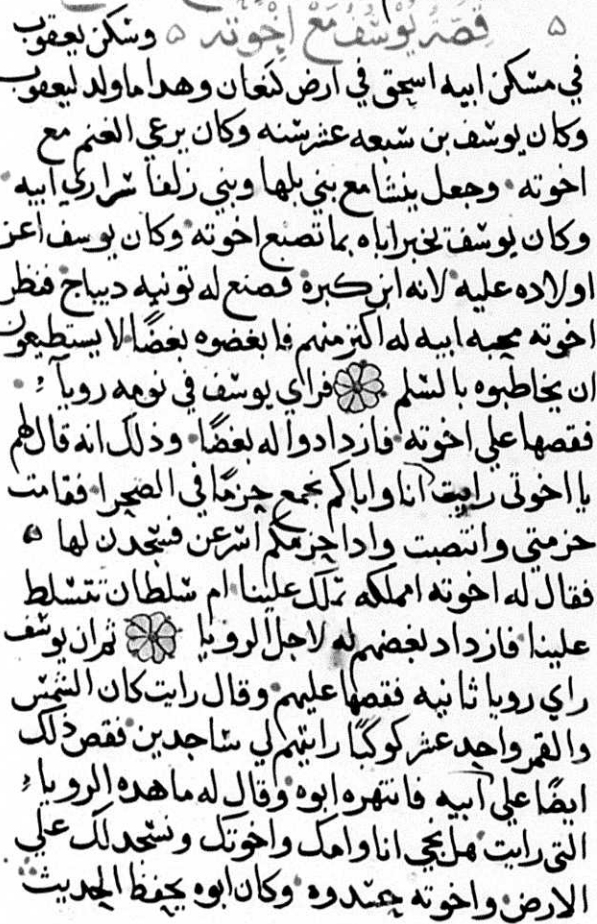 ه قصة يوسف مع اخوته ه وسكن يعقوب
في مسكن ابيه اسحق في ارض كنعان وهدا ما ولد ليعقوب
وكان يوسف بن سبعه عشر سنه وكان يرعي الغنم مع
اخوته وجعل ينشا مع بني بلها وبني زلفا سراري ابيه
وكان يوسف يخبر اباه بما تصنع اخوته وكان يوسف اعز
اولاده عليه لانه ابن كبرة فصنع له تونيه ديباج فنظر
اخوته محبه ابيه له اكتر منهم فابغضوه بغضًا لا يستطيعون
ان يخاطبوه بالسلم فراي يوسف في نومه رويا
فقصها علي اخوته فازدادوا له بغضًا وذلك انه قال لهم
يا اخوتي رايت انا واياكم نجمع حزمًا في الصحرا فقامت
حزمتي وانتصبت وادا حزمكم اسرعن فسجدن لها ه
فقال له اخوته امملكه تملك علينا ام سلطان تتسلط
علينا فازداد بغضهم له لاجل الرويا ثم ان يوسف
راي رويا ثانيه فقصها عليهم وقال رايت كان الشمس
والقمر واحد عشر كوكبًا رايتهم لي ساجدين فقص ذلك
ايضًا علي ابيه فانتهره ابوه وقال له ما هده الرويا
التي رايت هل نجي انا وامك واخوتك ونسجد لك علي
الارض واخوته حسدوه وكان ابوه يحفظ الحديث